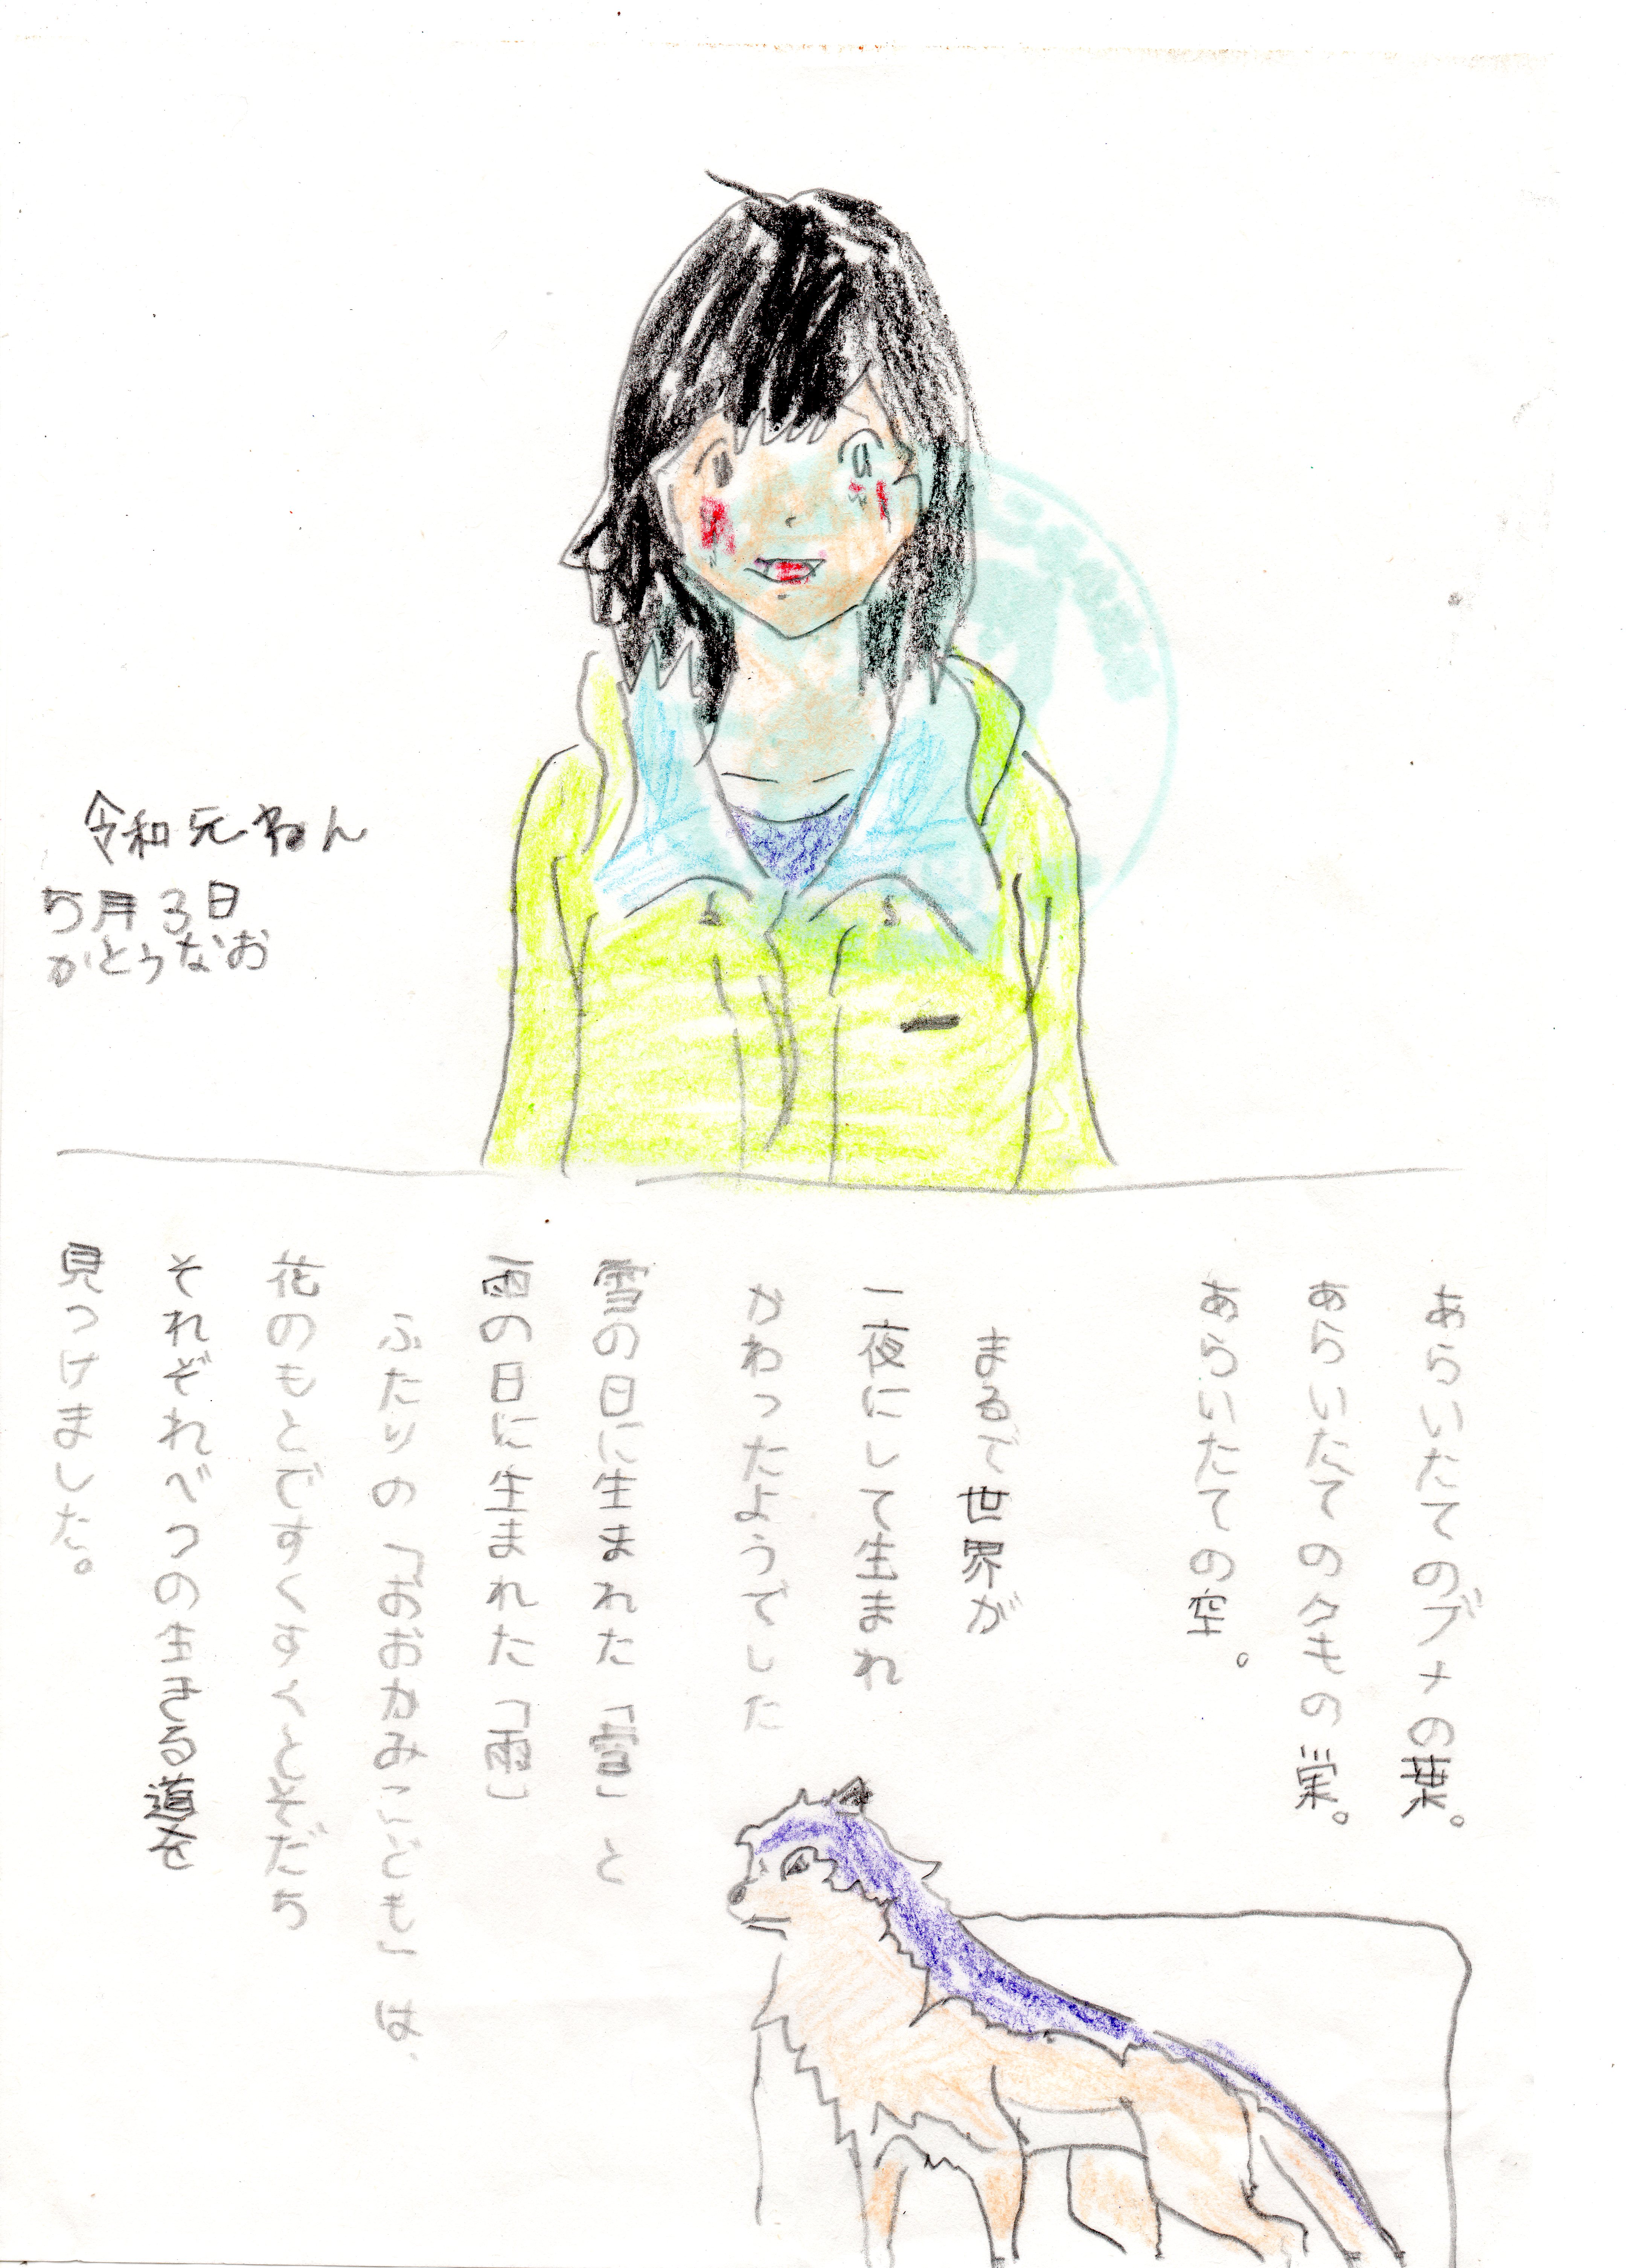 令和元ねん
5月3日
かとうなお
あらいたてのブナの葉。
あらいたてのクモの巣。
あらいたての空。
まるで世界が
一夜にして生まれ
かわったようでした
雪の日に生まれた「雪」と
雨の日に生まれた「雨」
ふたりの「おおかみこども」は
花のもとですくすくとそだち
それぞれべつの生きる道を
見つけました。